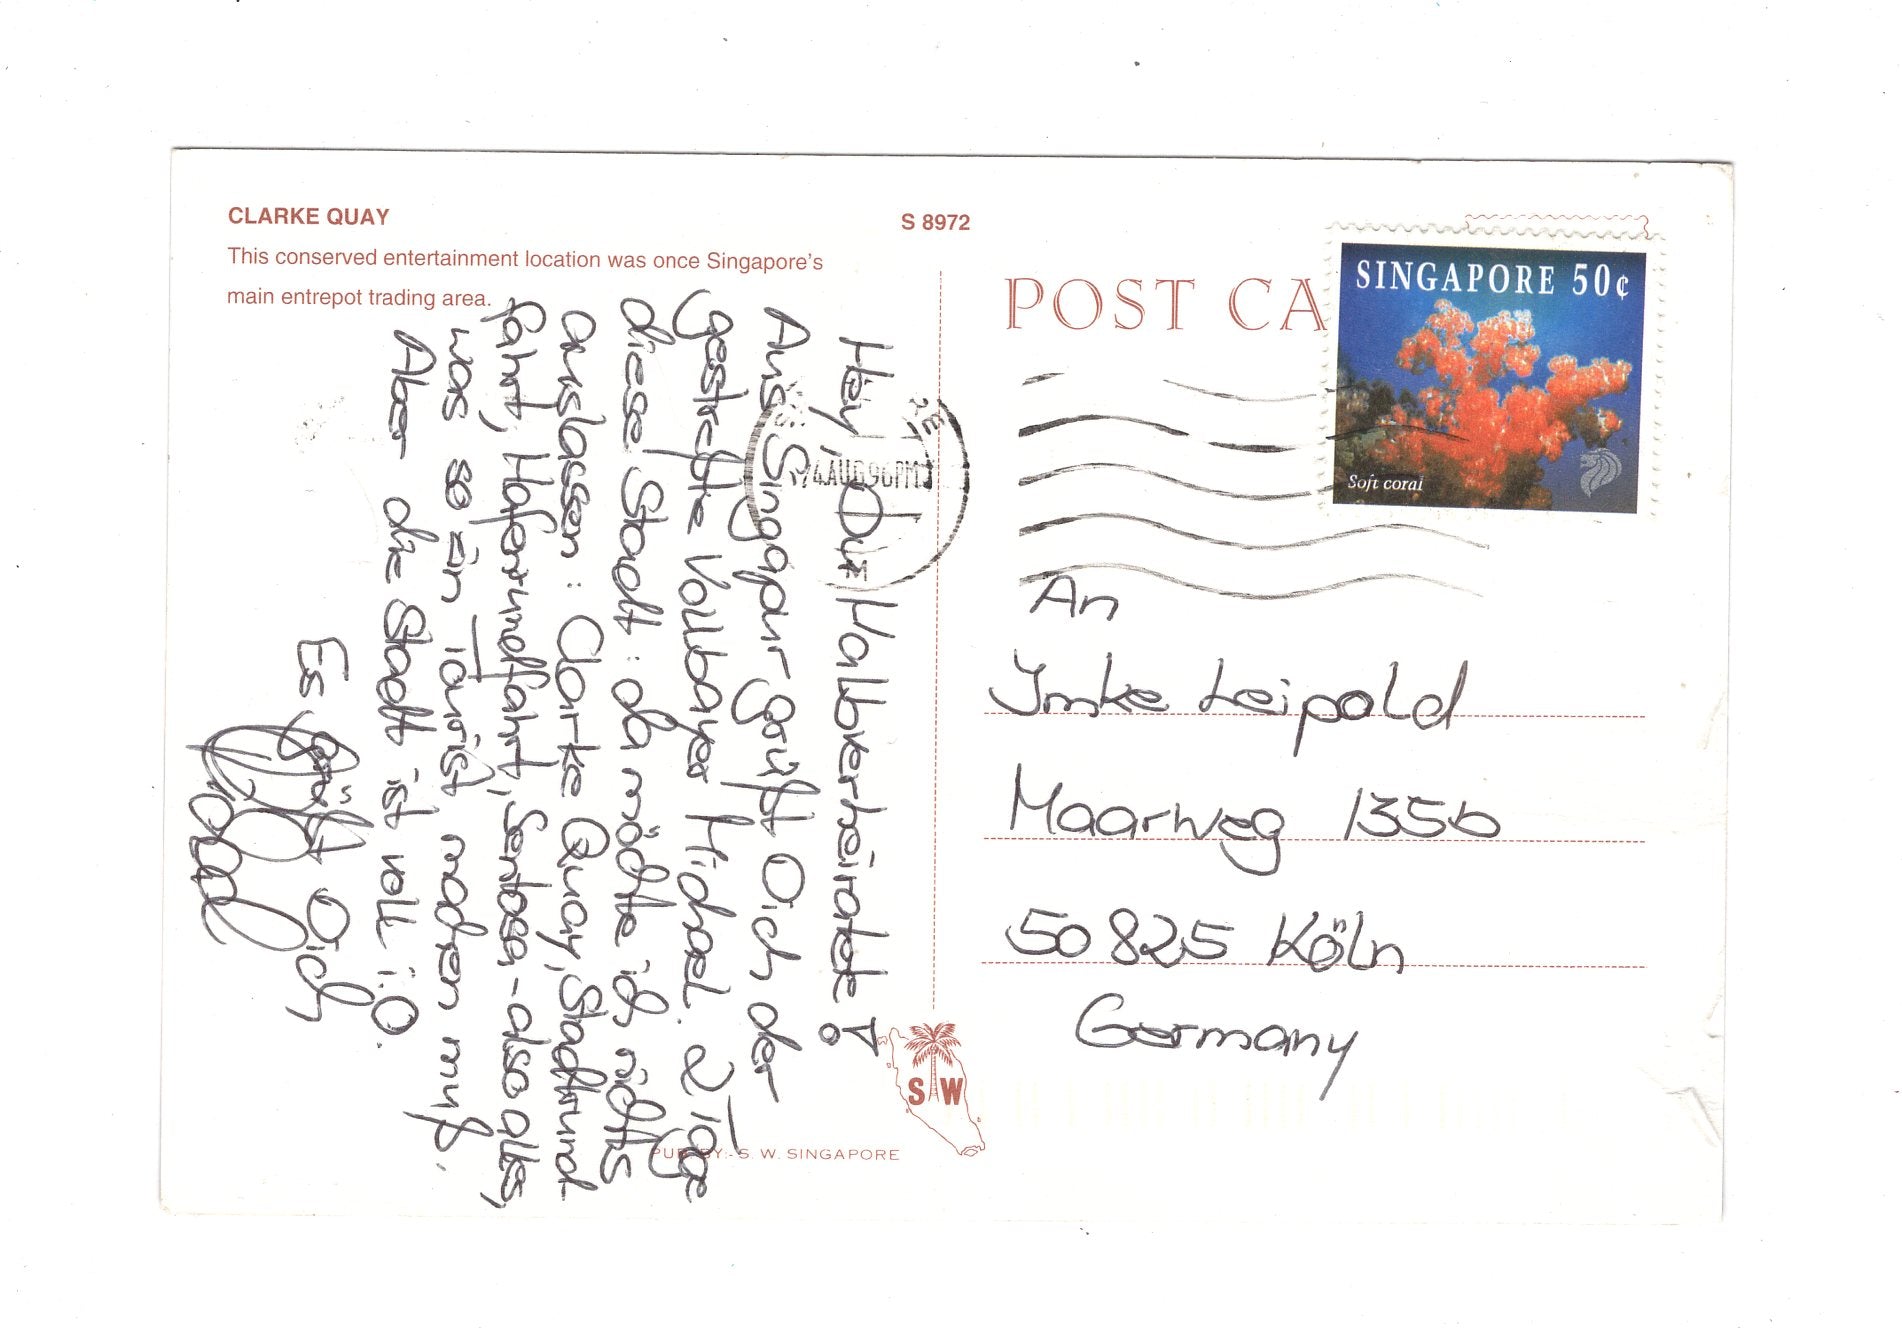 CLARKE QUAY
This conserved entertainment location was once Singapore's
main entrepot trading area.
S 8972
POST CA
SINGAPORE 50¢
Soft coral
4 AUG 96 PM
Hey, Du Halbverheiratete!
Aus Singapur grüßt Dich der
gestreßte Vollbayer Michael. 2 Tage
diese Stadt: da möchte ich nichts
auslassen: Clarke Quay, Stadtrund-
fahrt, Hafenrundfahrt, Sentosa - also alles,
was so ein Tourist machen muß.
Aber die Stadt ist voll i.O.
Es grüßt Dich
An
Imke Leipold
Maarweg 135b
50825 Köln
Germany
S W
PUB BY:- S. W. SINGAPORE